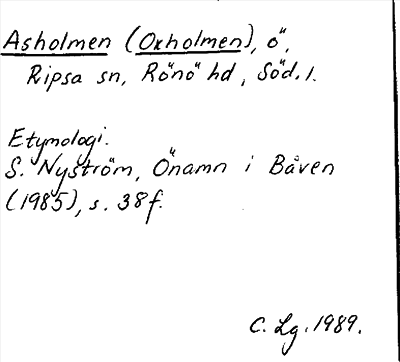 Asholmen (Oxholmen), ö,
Ripsa sn, Rönö hd, Söd. l.
Etymologi.
S. Nyström, Önamn i Båven
(1985), s. 38f.
C. Lg. 1989.